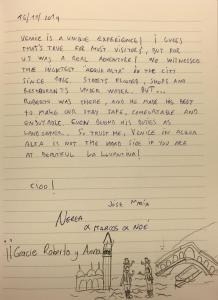 16/11/2019
VENICE IS A UNIQUE EXPERIENCE! I GUESS
THAT'S TRUE FOR MOST VISITORS, BUT FOR
US WAS A REAL ADVENTURE! WE WITNESSED
THE HIGHEST "ACQUA ALTA" IN THE CITY
SINCE 1966. STREETS FLOODED, SHOPS AND
RESTAURANTS UNDER WATER. BUT...
ROBERTO WAS THERE, AND HE MADE HIS BEST
TO MAKE OUR STAY SAFE, COMFORTABLE AND
ENJOYABLE. EVEN BEYOND HIS DUTIES AS
LANDLORD. SO TRUST ME, VENICE IN ACQUA
ALTA IS NOT THE HARD SIDE IF YOU ARE
AT BEAUTIFUL CA
CIAO!
JOSÉ Mª
NEREA
& MARCOS & NOÉ
¡¡Gracie Roberto y Anna